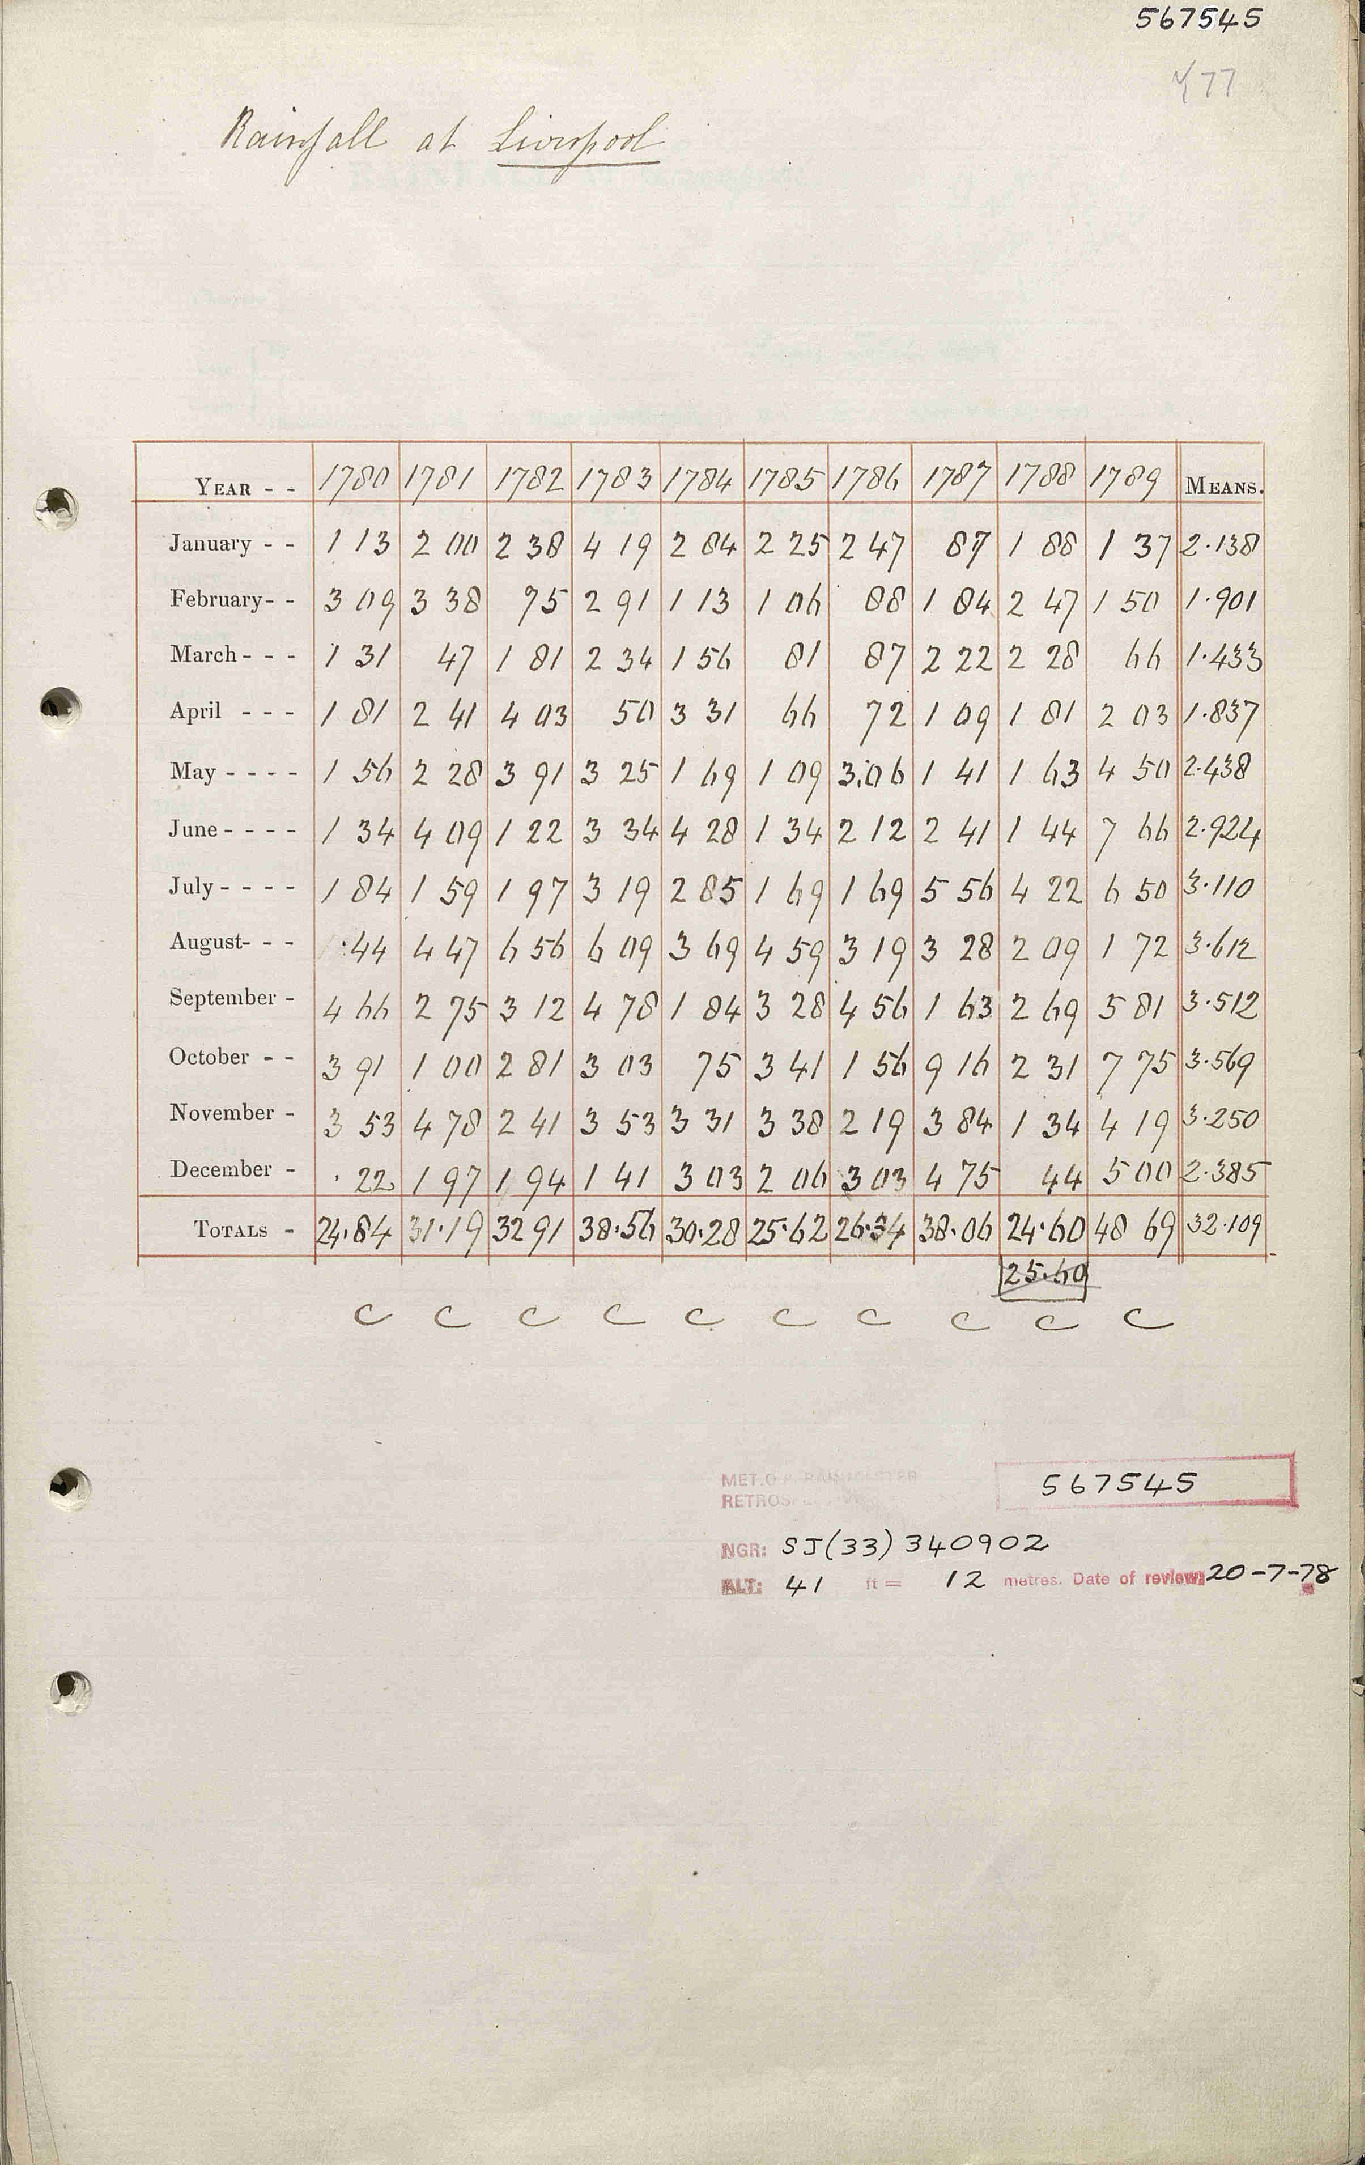 567545
77
Rainfall at Liverpool
YEAR - - 1780 1781 1782 1783 1784 1785 1786 1787 1788 1789 MEANS.
January - - 1 13 2 00 2 38 4 19 2 84 2 25 2 47 87 1 88 1 37 2.138
February - - 3 09 3 38 75 2 91 1 13 1 06 88 1 84 2 47 1 50 1.901
March - - - 1 31 47 1 81 2 34 1 56 81 87 2 22 2 28 66 1.433
April - - - 1 81 2 41 4 03 50 3 31 66 72 1 09 1 81 2 03 1.837
May - - - - 1 56 2 28 3 91 3 25 1 69 1 09 3.06 1 41 1 63 4 50 2.438
June - - - - 1 34 4 09 1 22 3 34 4 28 1 34 2 12 2 41 1 44 7 66 2.924
July - - - - 1 84 1 59 1 97 3 19 2 85 1 69 1 69 5 56 4 22 6 50 3.110
August - - - .44 4 47 6 56 6 09 3 69 4 59 3 19 3 28 2 09 1 72 3.612
September - 4 66 2 75 3 12 4 78 1 84 3 28 4 56 1 63 2 69 5 81 3.512
October - - 3 91 1 00 2 81 3 03 75 3 41 1 56 9 16 2 31 7 75 3.569
November - 3 53 4 78 2 41 3 53 3 31 3 38 2 19 3 84 1 34 4 19 3.250
December - . 22 1 97 1 94 1 41 3 03 2 06 3 03 4 75 44 5 00 2.385
TOTALS - 24.84 31.19 32 91 38.56 30.28 25.62 26.34 38.06 24.60 48 69 32.109
25.60
C C C C C C C C C C
MET.O.
567545
NGR: SJ(33) 340902
ALT: 41 ft = 12 metres. Date of review: 20-7-78